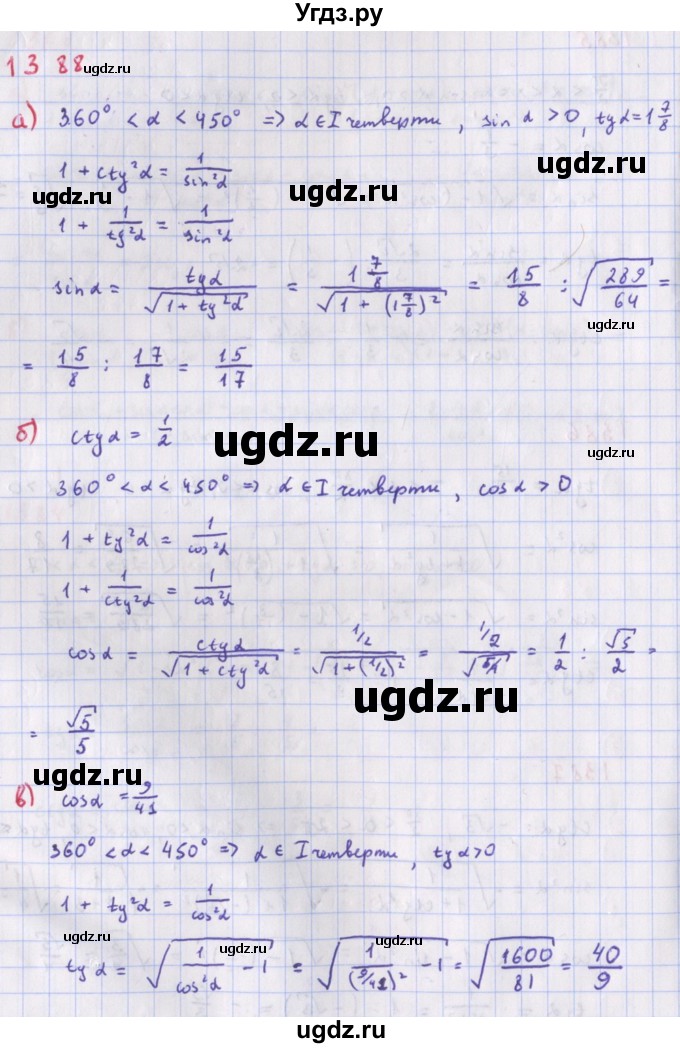 Угдз.ру
1388 ugdz.ru
а) 360° < α < 450° => α ∈ I четверти, sin α > 0, tg α = 1 7/8
1 + ctg²α = 1/sin²α
ugdz.ru ugdz.ru
1 + 1/tg²α = 1/sin²α
sin α = tg α/√(1 + tg²α) = (1 7/8)/√(1 + (1 7/8)²) = 15/8 : √(289/64) =
ugdz.ru
= 15/8 : 17/8 = 15/17
б) ctg α = 1/2
ugdz.ru ugdz.ru
360° < α < 450° => α ∈ I четверти, cos α > 0
1 + tg²α = 1/cos²α
1 + 1/ctg²α = 1/cos²α
cos α = ctg α/√(1 + ctg²α) = (1/2)/√(1 + (1/2)²) = (1/2)/√(5/4) = 1/2 : √5/2 =
ugdz.ru
= √5/5
ugdz.ru
в) cos α = 9/41
ugdz.ru
360° < α < 450° => α ∈ I четверти, tg α > 0
1 + tg²α = 1/cos²α
ugdz.ru ugdz.ru
tg α = √(1/cos²α - 1) = √(1/(9/41)² - 1) = √(1600/81) = 40/9
ugdz.ru ugdz.ru
ugdz.ru